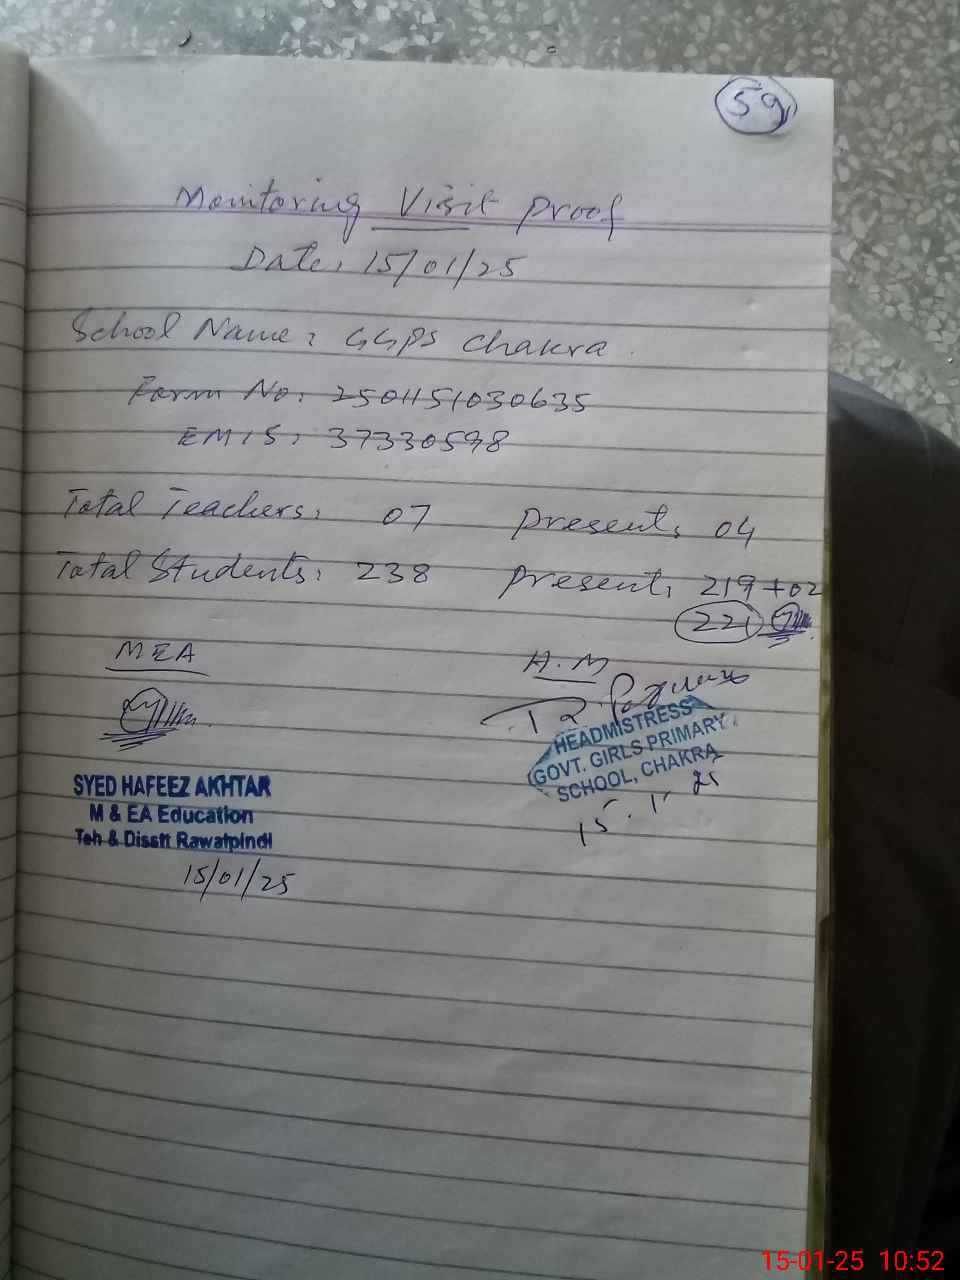 59
Monitoring Visit Proof
Date: 15/01/25
School Name: GGPS Chakra.
Farm No: 2501151030635
EMIS: 37330598
Total Teachers: 07 Present: 04
Total Students: 238 Present: 219+02
221
MEA
H.M
HEADMISTRESS
GOVT. GIRLS PRIMARY
SCHOOL, CHAKRA
15.1.25
SYED HAFEEZ AKHTAR
M & EA Education
Teh & Disstt Rawalpindi
15/01/25
15-01-25 10:52